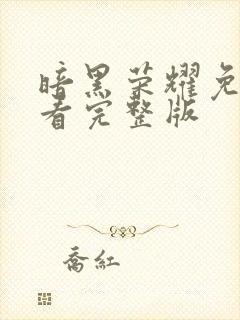 暗黑荣耀免
看完整版
喬紅